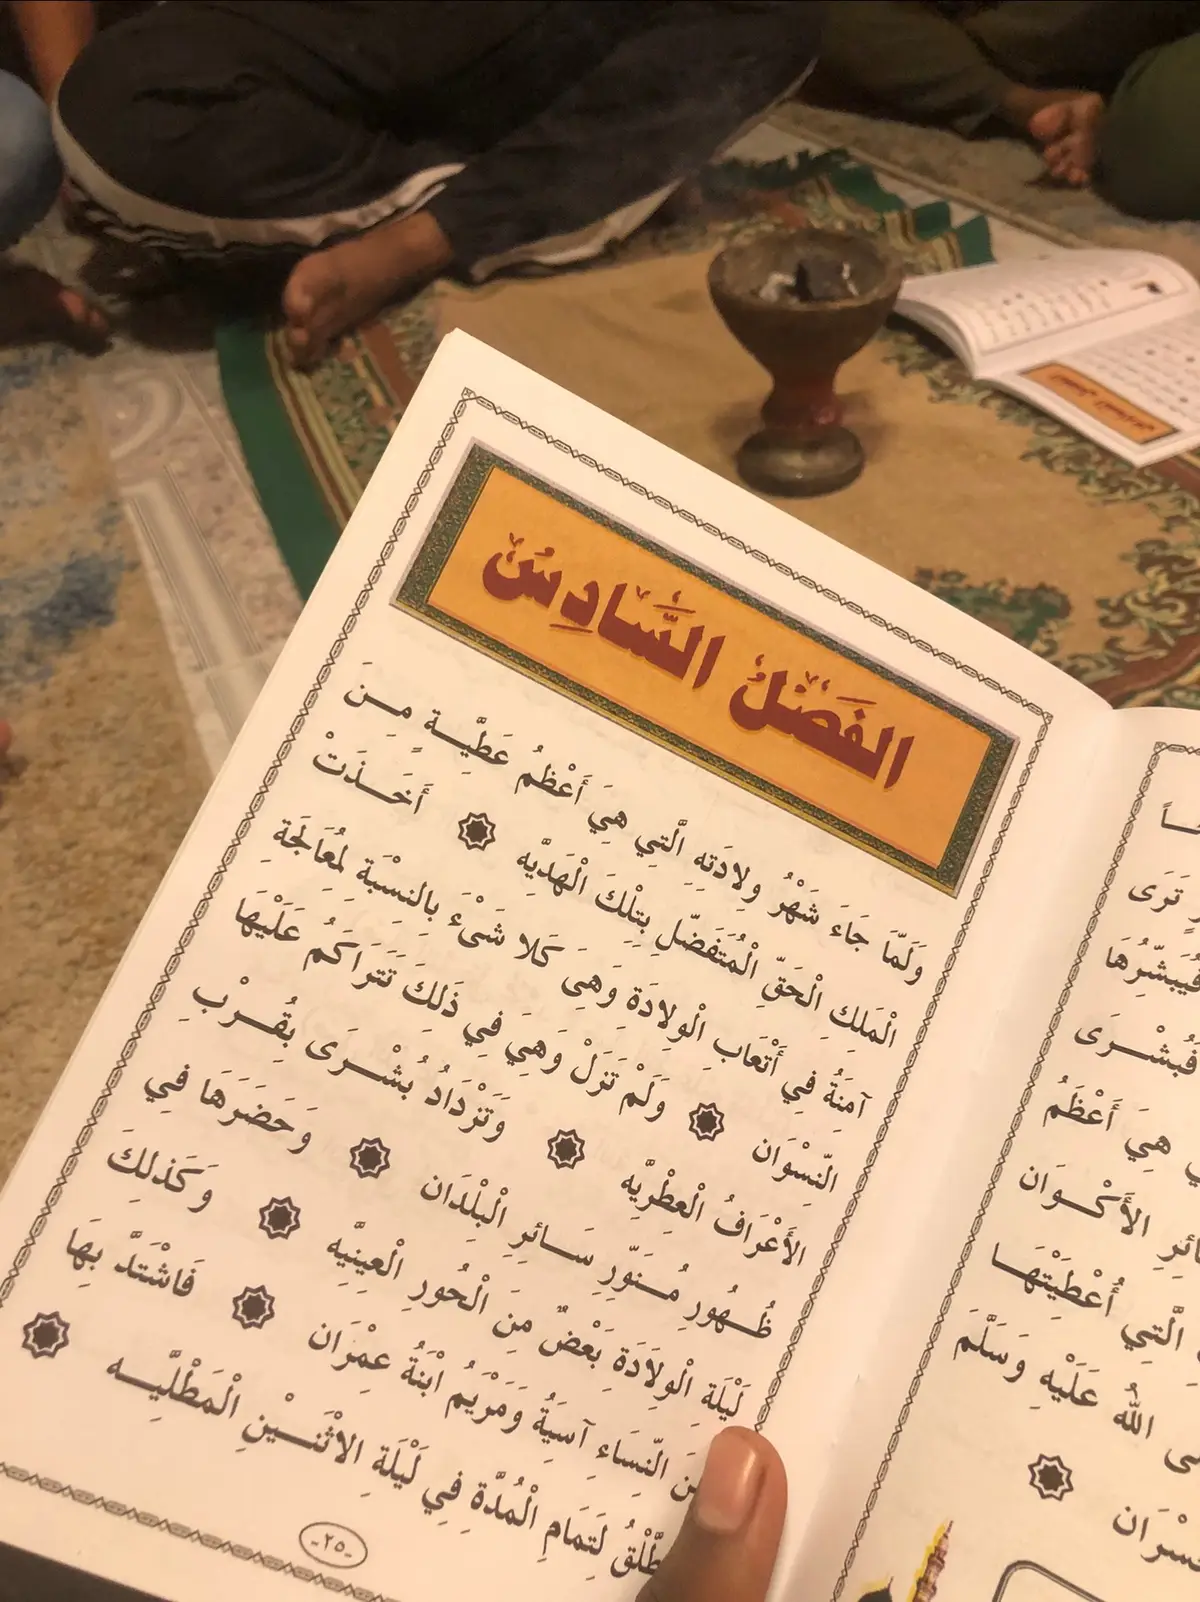 الفَصْلُ السَّادِسُ
وَلَمَّا جَاءَ شَهْرُ وِلادَتِهِ الَّتِي هِيَ أَعْظَمُ عَطِيَّةٍ مِنَ
الْمَلِكِ الْحَقِّ الْمُتَفَضِّلِ بِتِلْكَ الْهَدِيَّه ۞ أَخَذَتْ
آمِنَةُ فِي أَتْعَابِ الْوِلادَةِ وَهِيَ كَلا شَيْءَ بِالنِسْبَةِ لِمُعَالَجَةِ
النِّسْوَان ۞ وَلَمْ تَزَلْ وَهِيَ فِي ذَلِكَ تَتَرَاكَمُ عَلَيْهَا
الأَعْرَافُ الْعِطْرِيَّه ۞ وَتَزْدَادُ بُشْرَى بِقُرْبِ
ظُهُورِ مُنَوِّرِ سَائِرِ الْبُلْدَان ۞ وَحَضَرَهَا فِي
لَيْلَةِ الْوِلَادَةِ بَعْضٌ مِنَ الْحُورِ الْعِينِيَّه ۞ وَكَذلِكَ
النِّسَاءِ آسِيَةُ وَمَرْيَمُ ابْنَةُ عِمْرَان ۞ فَاشْتَدَّ بِهَا
لَتَمَامِ الْمُدَّةِ فِي لَيْلَةِ الاثْنَيْنِ الْمَطْلِيَّه ۞
-٢٥-
تَرَى
فَيُبَشِّرُهَا
فَبُشْرَى
هِيَ أَعْظَمُ
الأَكْوَان
الَّتِي أُعْطِيْتَهَا
اللهُ عَلَيْهِ وَسَلَّمَ
۞